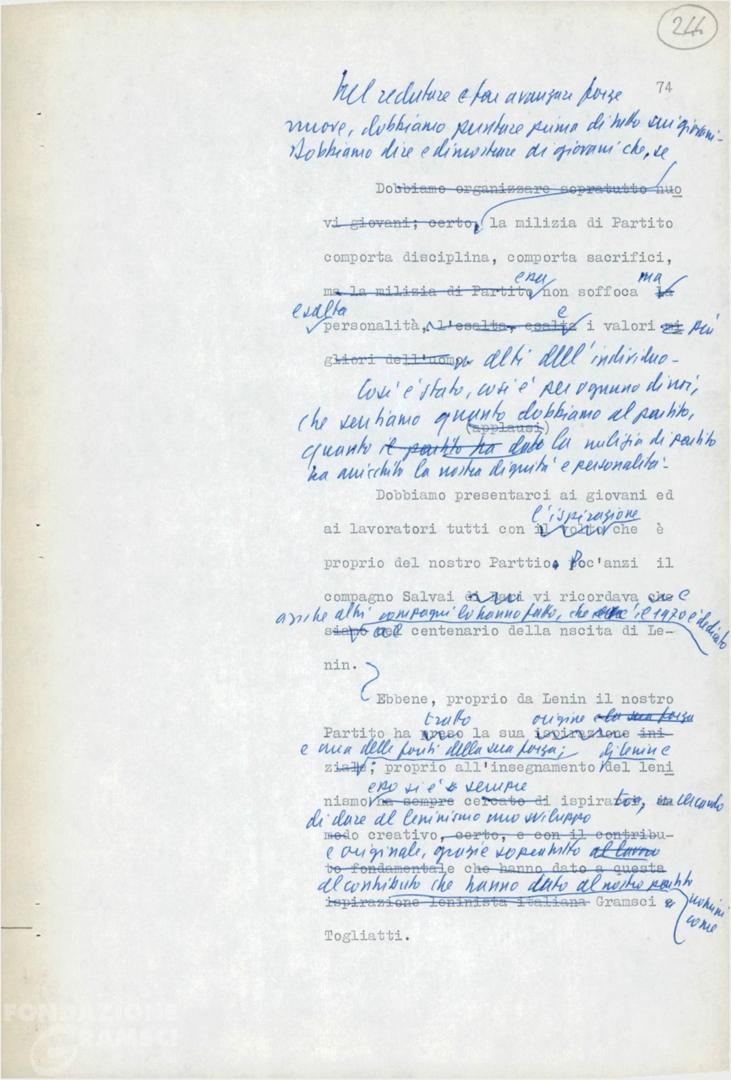 244
74
Nel reclutare e far avanzare forze
nuove, dobbiamo puntare prima di tutto sui giovani.
Dobbiamo dire e dimostrare ai giovani che, se
Dobbiamo organizzare sopratutto nuo
vi giovani; certo, la milizia di Partito
comporta disciplina, comporta sacrifici,
essa ma
ma la milizia di Partito non soffoca la
esalta e
personalità, l'esalta, esalta i valori mi più
gliori dell'uomo. alti dell'individuo.
Così è stato, così è per ognuno di noi,
che sentiamo quanto dobbiamo al partito,
(applausi)
quanto il partito ha dato la milizia di partito
ha arricchito la nostra dignità e personalità.
Dobbiamo presentarci ai giovani ed
l'ispirazione
ai lavoratori tutti con il volto che è
proprio del nostro Parttio. Poc'anzi il
compagno Salvai vi ricordava che e
anche altri compagni lo hanno fatto, che il 1970 è dedicato
al centenario della nscita di Le-
nin.
Ebbene, proprio da Lenin il nostro
tratto origine e la sua forza
Partito ha preso la sua ispirazione ini-
e una delle fonti della sua forza; di Lenin e
ziale; proprio all'insegnamento del leni
esso si è sempre
nismo ha sempre cercato di ispirato, cercando
di dare al leninismo uno sviluppo
modo creativo, certo, e con il contribu-
e originale, grazie soprattutto al lavoro
to fondamentale che hanno dato a questa
al contributo che hanno dato al nostro partito
ispirazione leninista italiana Gramsci e uomini
come
Togliatti.
FONDAZIONE
GRAMSCI